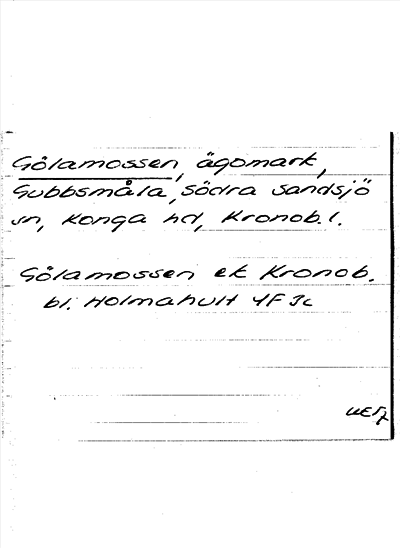 Gölamossen, ägomark,
Gubbsmåla, Södra Sandsjö
sn, Konga hd, Kronob. l.
Gölamossen ek Kronob.
bl. Holmahult 4F 3c